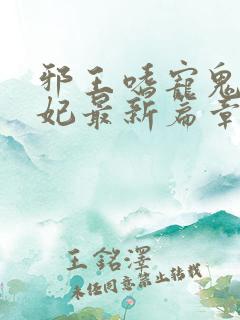 邪王嗜寵鬼
妃最新扁章
王銘澤
未经同意禁止转载